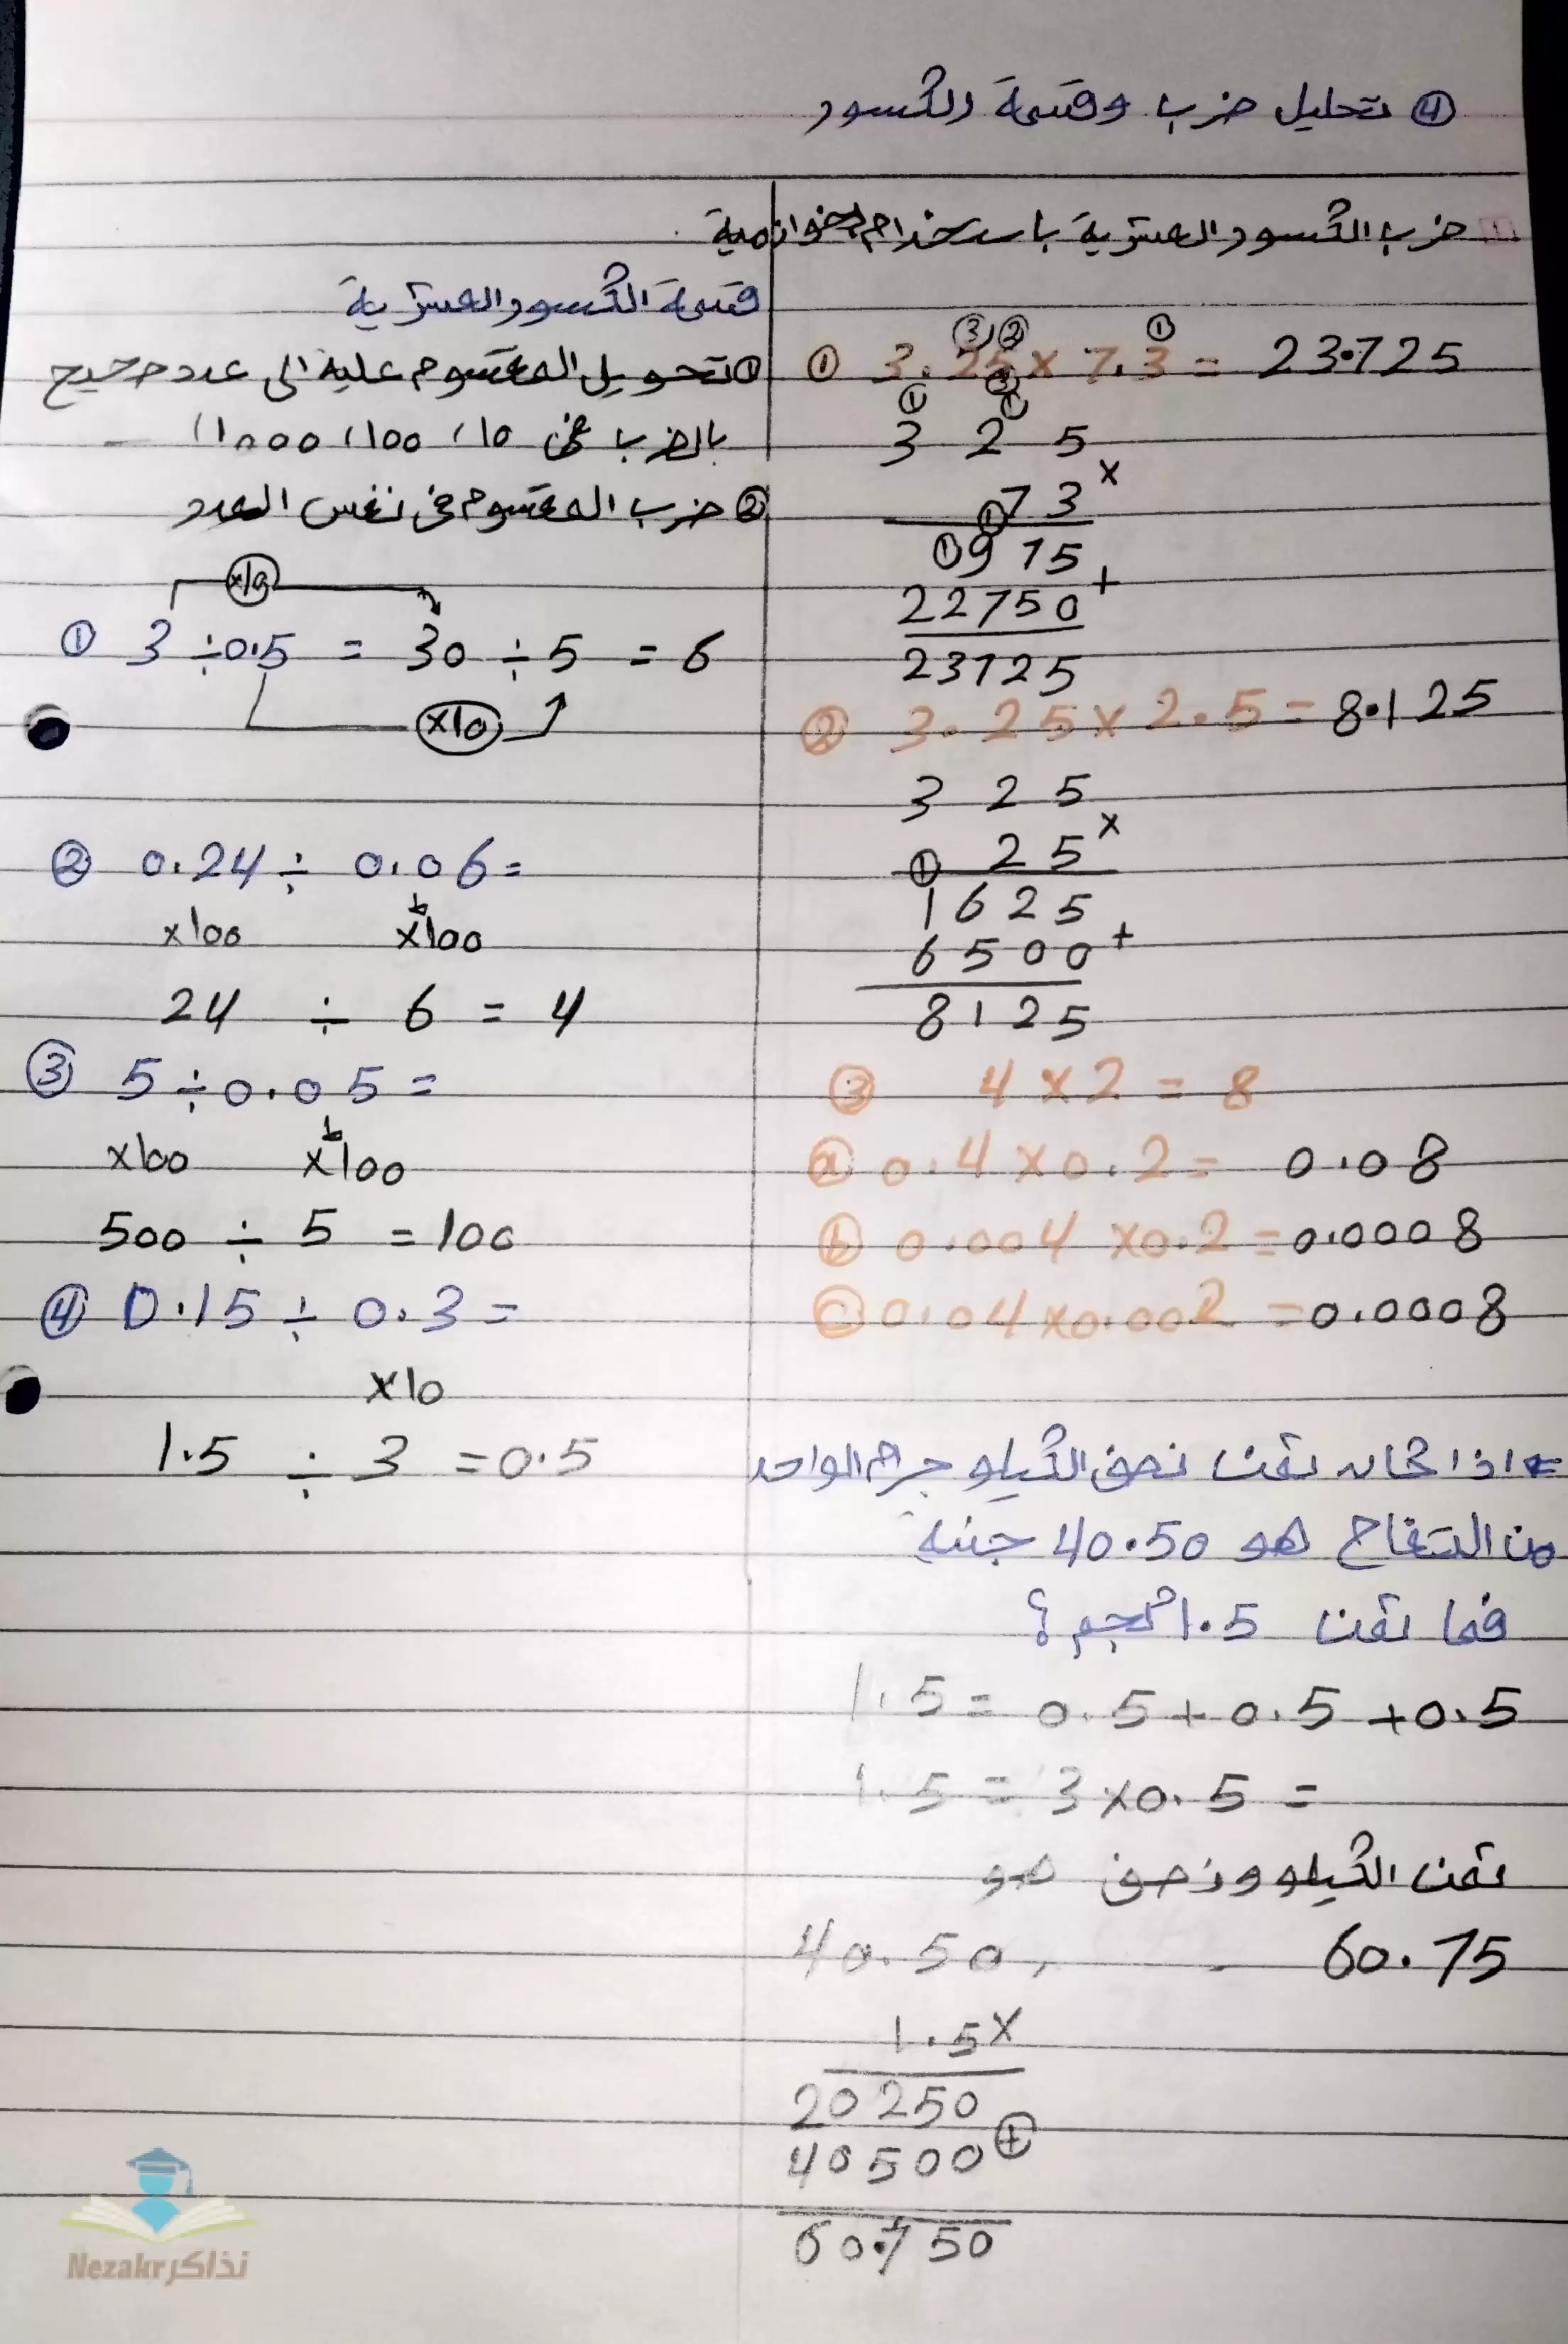 ④ تحليل ضرب وقسمة الكسور
ضرب الكسور العشرية باستخدام الخوارزمية
① 3.25 × 7.3 = 23.725
3 2 5
×
73
0975
+
22750
23725
② 3.25 × 2.5 = 8.125
3 2 5
×
2 5
1625
+
6500
8125
③ 4 × 2 = 8
ⓐ 0.4 × 0.2 = 0.08
ⓑ 0.004 × 0.2 = 0.0008
ⓒ 0.04 × 0.002 = 0.0008
اذا كان ثمن نصف الكيلو جرام الواحد
من التفاح هو 40.50 جنية
فما ثمن 1.5 كجم؟
1.5 = 0.5 + 0.5 + 0.5
1.5 = 3 × 0.5 =
ثمن الكيلو ونصف هو
60.75
40.50
1.5 ×
20250
40500 +
60.750
قسمة الكسور العشرية
① تحويل المقسوم علية الى عدد صحيح
بالضرب في 10، 100، 1000
② ضرب المقسوم في نفس العدد
×10
① 3 ÷ 0.5 = 30 ÷ 5 = 6
×10
② 0.24 ÷ 0.06 =
×100 ×100
24 ÷ 6 = 4
③ 5 ÷ 0.05 =
×100 ×100
500 ÷ 5 = 100
④ 0.15 ÷ 0.3 =
×10
1.5 ÷ 3 = 0.5
Nezakr نذاكر